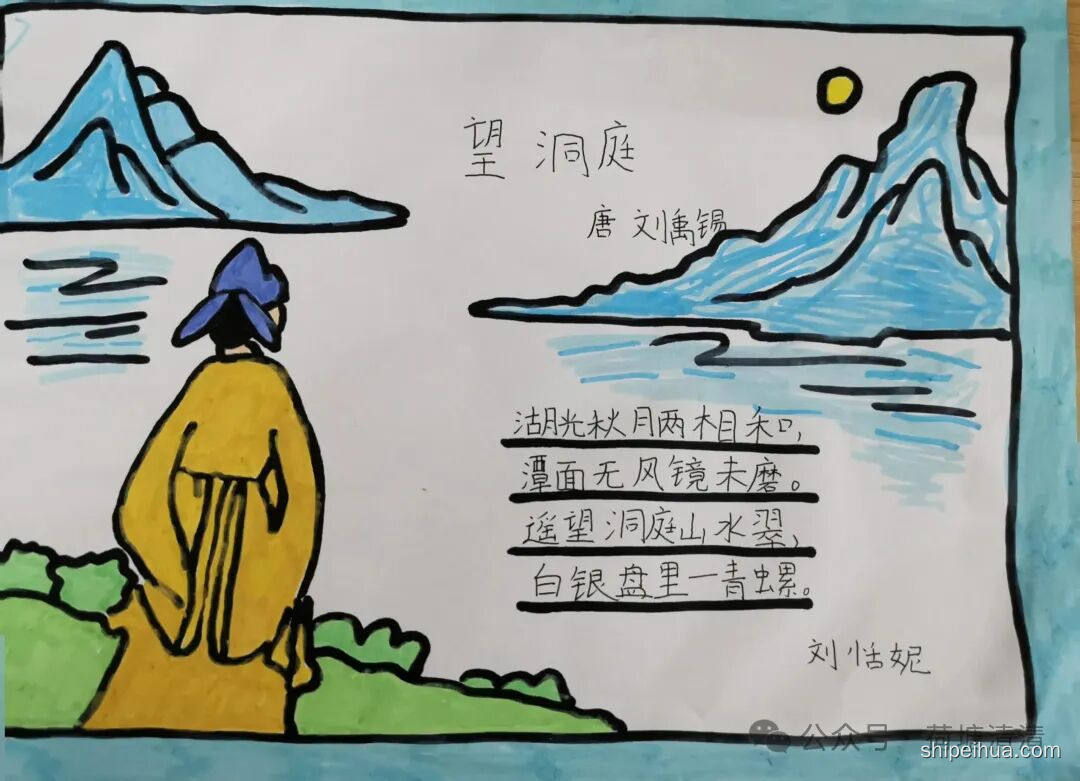 望洞庭
唐 刘禹锡
湖光秋月两相和,
潭面无风镜未磨。
遥望洞庭山水翠,
白银盘里一青螺。
刘恬妮
公众号·荷塘清清
shipeihua.com